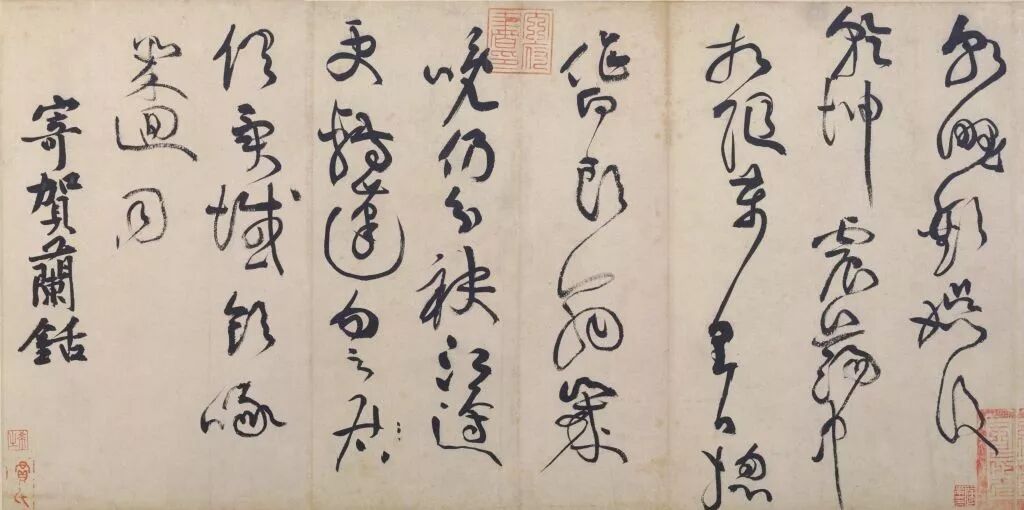 朝野歡娛後
乾坤震蕩中
相隨萬里日揔
作白頭翁歲
晚仍分袂江邊
更轉蓬勿云君
俱異域飲啄
幾迴同
寄賀蘭銛